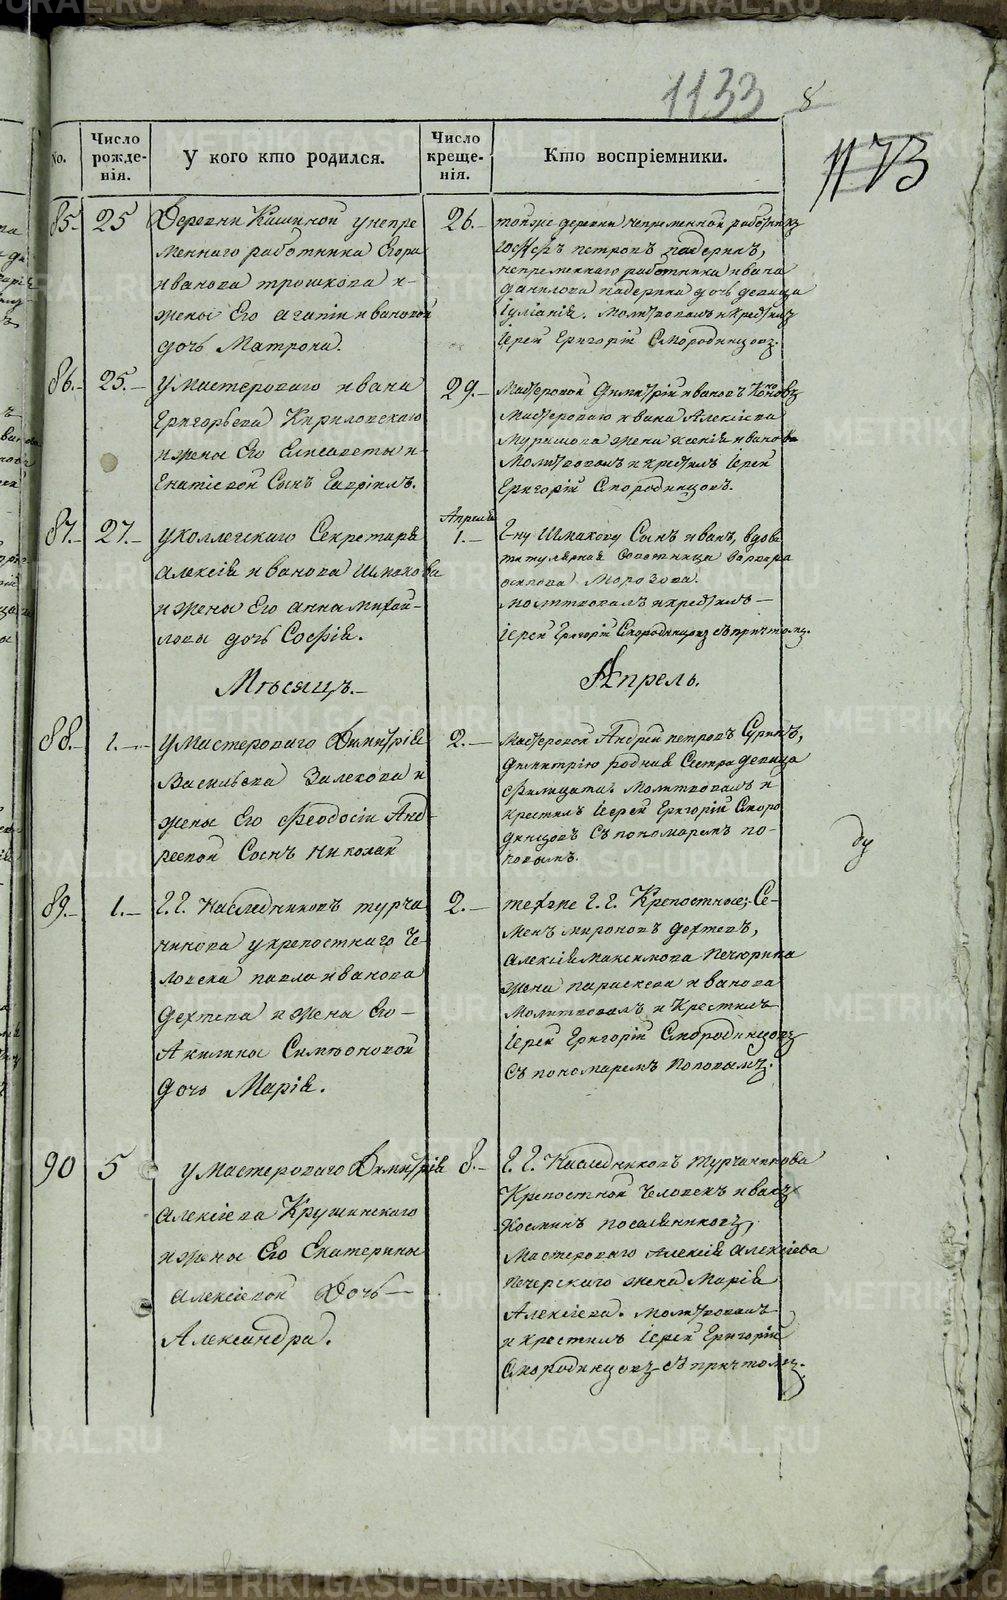 1133 8
1173
No.
Число рожде-нія.
У кого кто родился.
Число креще-нія.
Кто воспріемники.
85. 25
Деревни Кашиной у непре
меннаго работника Егора
иванова трошкова и
жены Его агапіи ивановой
дочь Матрона.
26.
тойже деревни непременной работникъ
петровъ падеринъ,
непременнаго работника ивана
данилова падерина дочь девица
Іуліанія. Молитвовалъ и Крестилъ
Іерей Григорій Смородинцовъ.
86. 25.
у Мастероваго ивана
Григорьева Кириловскаго
и жены Его Елисаветы и
гнатіевой Сынъ Гавріилъ.
29.
Мастеровой Димитрій ивановъ
Мастероваго ивана Алексіева
Мурашова жена ксенія иванова
Молитвовалъ и крестилъ Іерей
Григорій Смородинцовъ.
87. 27.
у коллежскаго Секретаря
Алексія иванова Шмакова
и жены Его анны михай-
ловы дочь Софія.
Апреля
1.
Г-ну Шмакову Сынъ иванъ, вдова
титулярная Советница варвара
осипова Морозова.
молитвовалъ и крестилъ
Іерей Григорій Смородинцовъ Съ причтомъ.
Месяцъ.
Апрель.
88. 1.
у Мастероваго Димитрія
Васильева Залекова и
жены Его Феодосіи Анд-
реевой Сынъ Николай
2.
Мастеровой Андрей петровъ Суринъ,
димитрію родная Сестра девица
Фелицата. Молитвовалъ и
крестилъ Іерей Григорій Сморо
динцовъ Съ пономаремъ по-
повымъ.
ду
89. 1.
Г. Г. Наследниковъ турча
нинова у крепостнаго Че-
ловека павла иванова
дехтева и жены Его
Акилины Симеоновой
дочь Марія.
2.
техже Г. Г. Крепостные; Се-
менъ мироновъ дехтевъ,
алексія максимова Печюрина
жена параскева иванова
Молитвовалъ и Крестилъ
Іерей Григорій Смородинцовъ
Съ пономаремъ Поповымъ.
90 5
у мастероваго Димитрія
алексіева Крушинскаго
и жены Его Екатерины
алексіевой Дочь
Александра.
8.
Г. Г. Наследниковъ Турчанинова
Крепостной Человекъ иванъ
Козминъ посаленниковъ,
Мастероваго Алексія алексіева
Печерскаго жена Марія
Алексіева. Молитвовалъ
и крестилъ Іерей Григорій
Смородинцовъ Съ причтомъ.
METRIKI.GASO-URAL.RU